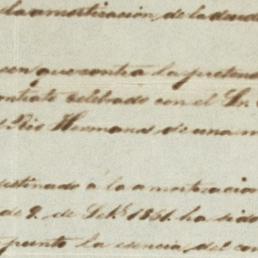 la amortización de la deud
cen que contra la preten
ontrato celebrado con el Sr.
Rio Hermana de una m
estinado á la amortizacion
de 2. de Set.e 1851. ha sido
punto la esencia del con